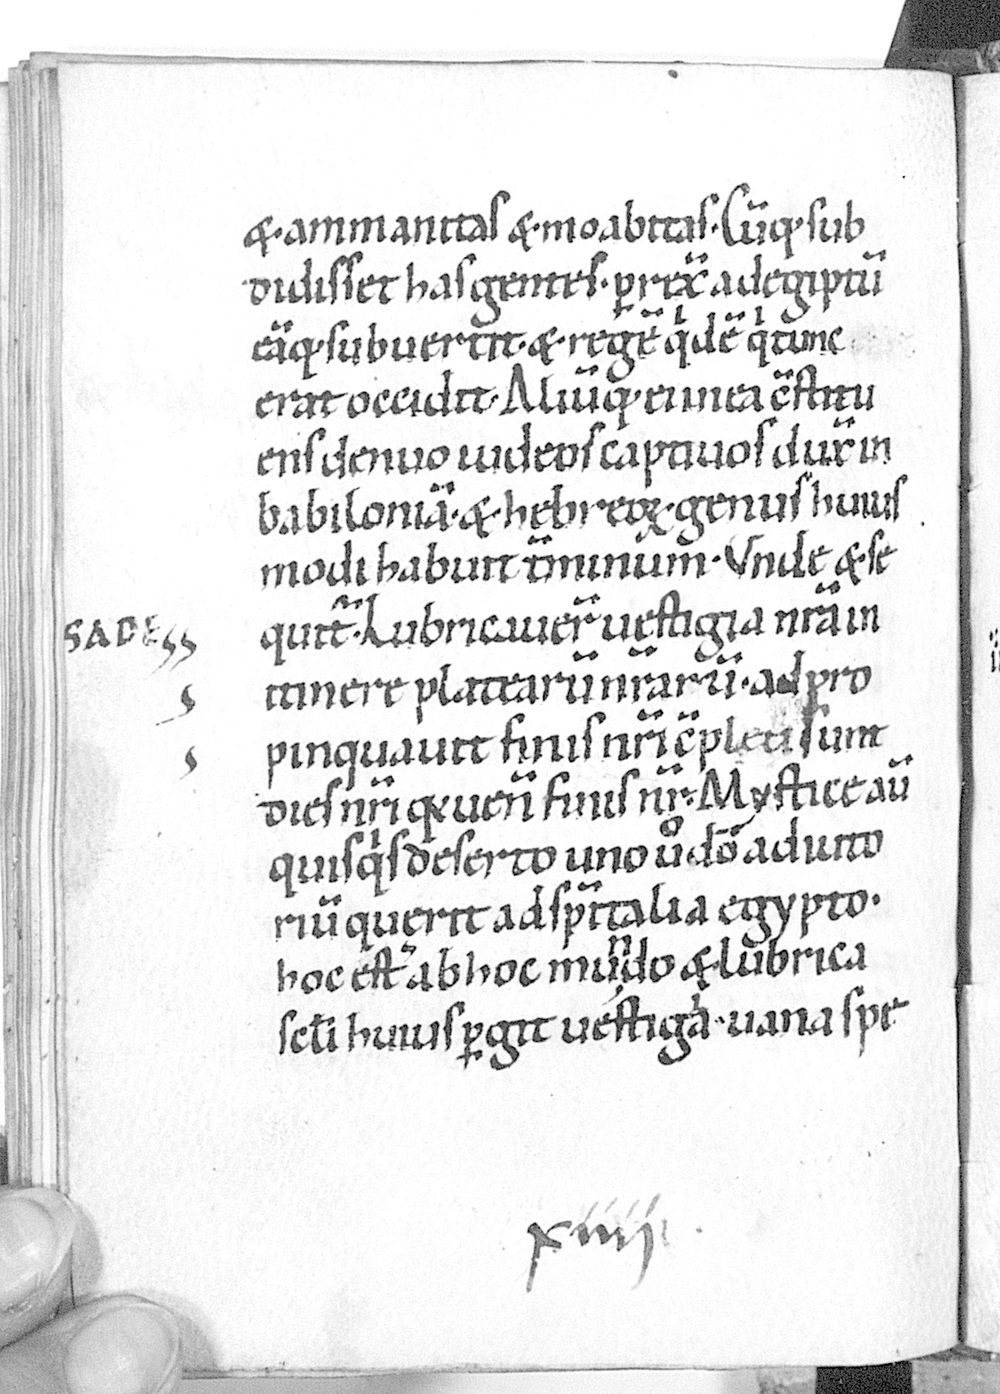 &·ammanitas &·moabitas·Cūq; sub
didisset has gentes· prexit ad egiptū
eāq; subuertit·& regē q̇dē q̇ tunc
erat occidit· Aliūq; in ea c̄stitu
ens denuo iudeos captiuos duxit in
babiloniā·& hebreoꝝ genus huius
modi habuit t̄minum· Vnde & se
quit̄· Lubricauer̄ uestigia nr̄a in
itinere platearū nr̄arū· adpro
pinquauit finis nr̄i c̄pleti sunt
dies nr̄i q uen̄ finis nr̄· Mystice aū
quisq̇s deserto uno uº dō adiuto
riū querit ad sp̄italia egypto·
hoc est ab hoc mundo & lubrica
scl̄i huius ꝑgit uestigia· uana spe
SADE
xiiii